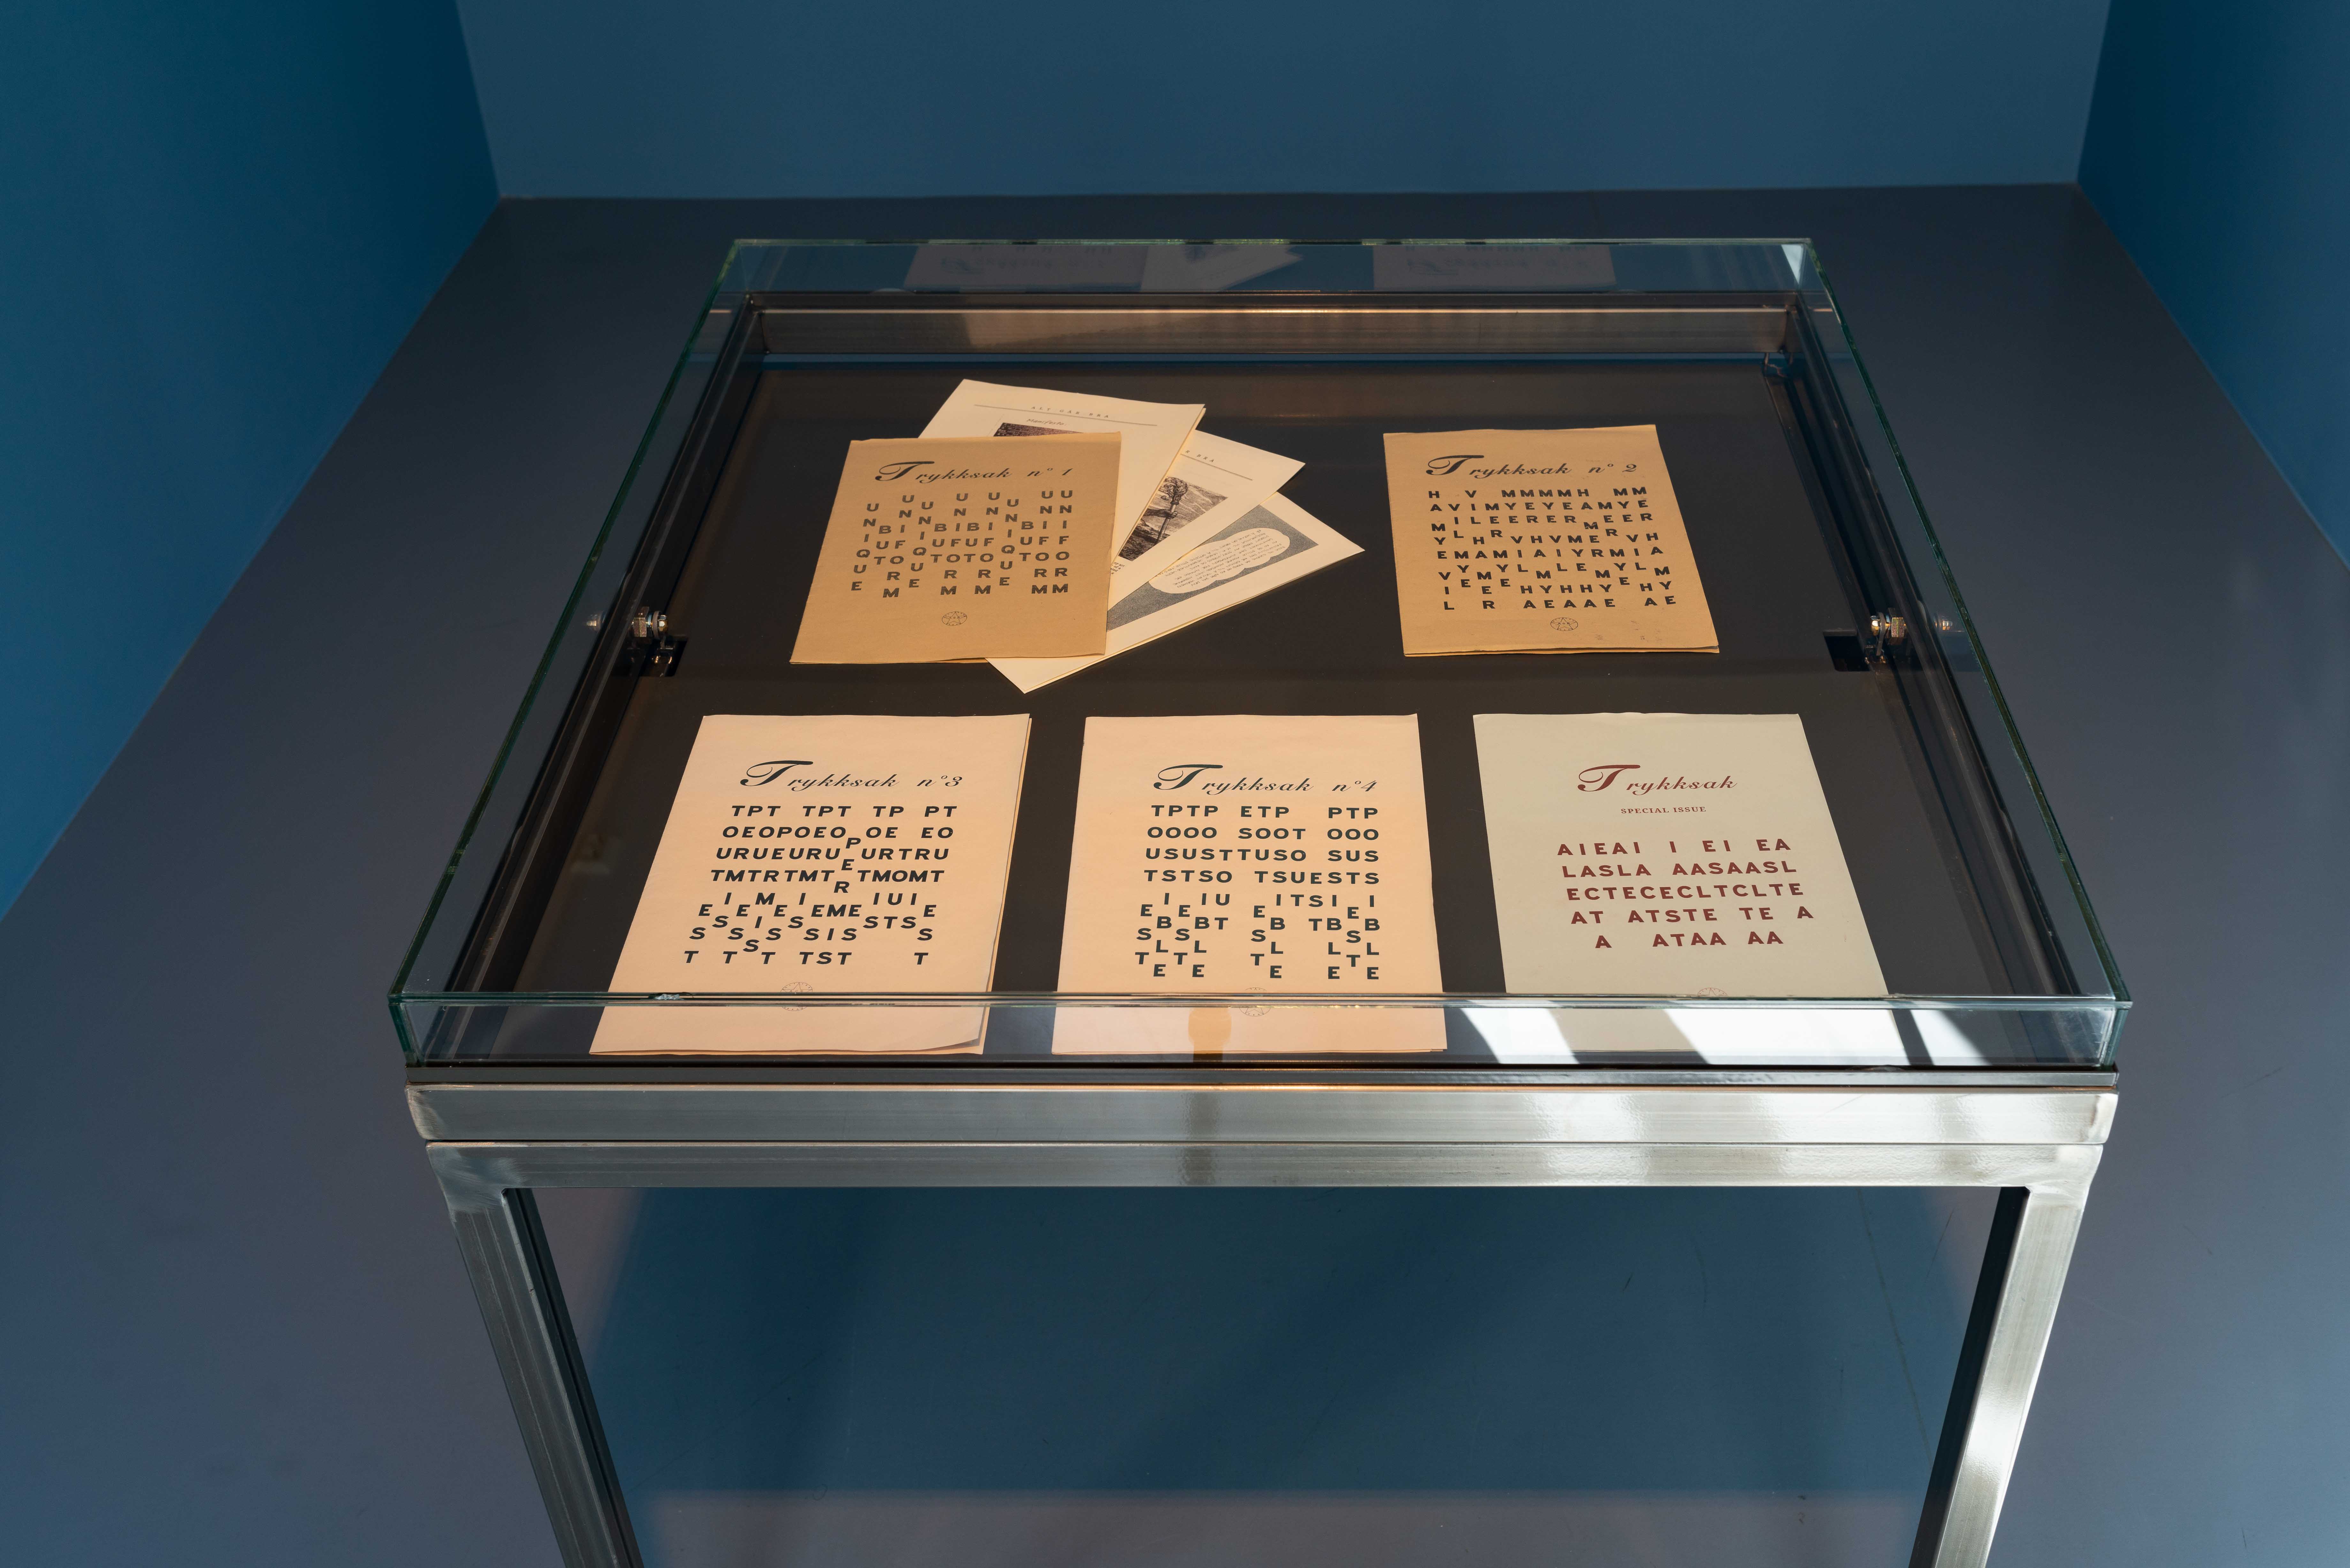 ALT VAR BRA
Trykksak n° 1
UNIQUE BUT UNIFORM UNIQUE BUT UNIFORM BUT UNIFORM UNIQUE BUT UNIFORM UNIFORM
Trykksak n° 2
H V MMMMH MM
AVIMYEYEAMYE
MILEERERMEER
YLHRVHVMERVH
EMAMIAIYRMIA
VYMYLMLEMYLM
IEEEHYHHYEHY
L R AEAAE AE
Trykksak n°3
TPT TPT TP PT
OEOPOEO OE EO
URUEURUPURTRU
TMTRTMTETMOMT
I M I R IUI
ESEIESEMESTSE
S S S SIS S
T TST TST T
Trykksak n°4
TPTP ETP PTP
OOOO SOOT OOO
USUSTTUSO SUS
TSTSO TSUESTS
I IU ITSI I
EBEBT EB TBEB
SLSL SL LSL
TETE TE ETE
Trykksak
SPECIAL ISSUE
AIEAI I EI EA
LASLA AASAASL
ECTECECLTCLTE
AT ATSTE TE A
A ATAA AA